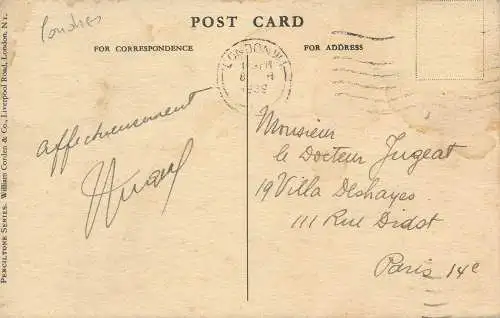 Londres
POST CARD
FOR CORRESPONDENCE
FOR ADDRESS
LONDON W.1
1939
affectueusement
Monsieur
le Docteur Jugeat
19 Villa Deshayes
111 Rue Didot
Paris 14e
PERCILTONE SERIES. William Cordeo & Co., Liverpool Road, London, N.1.